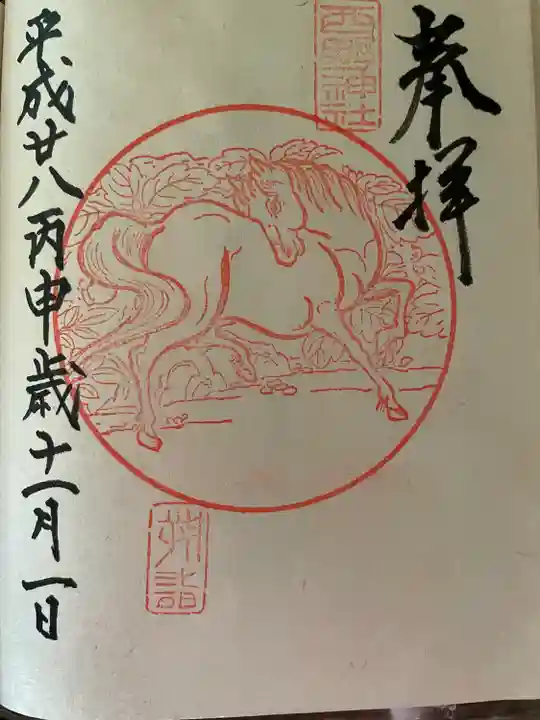 奉拝
西野神社
朔詣
平成廿八丙申歳十一月一日